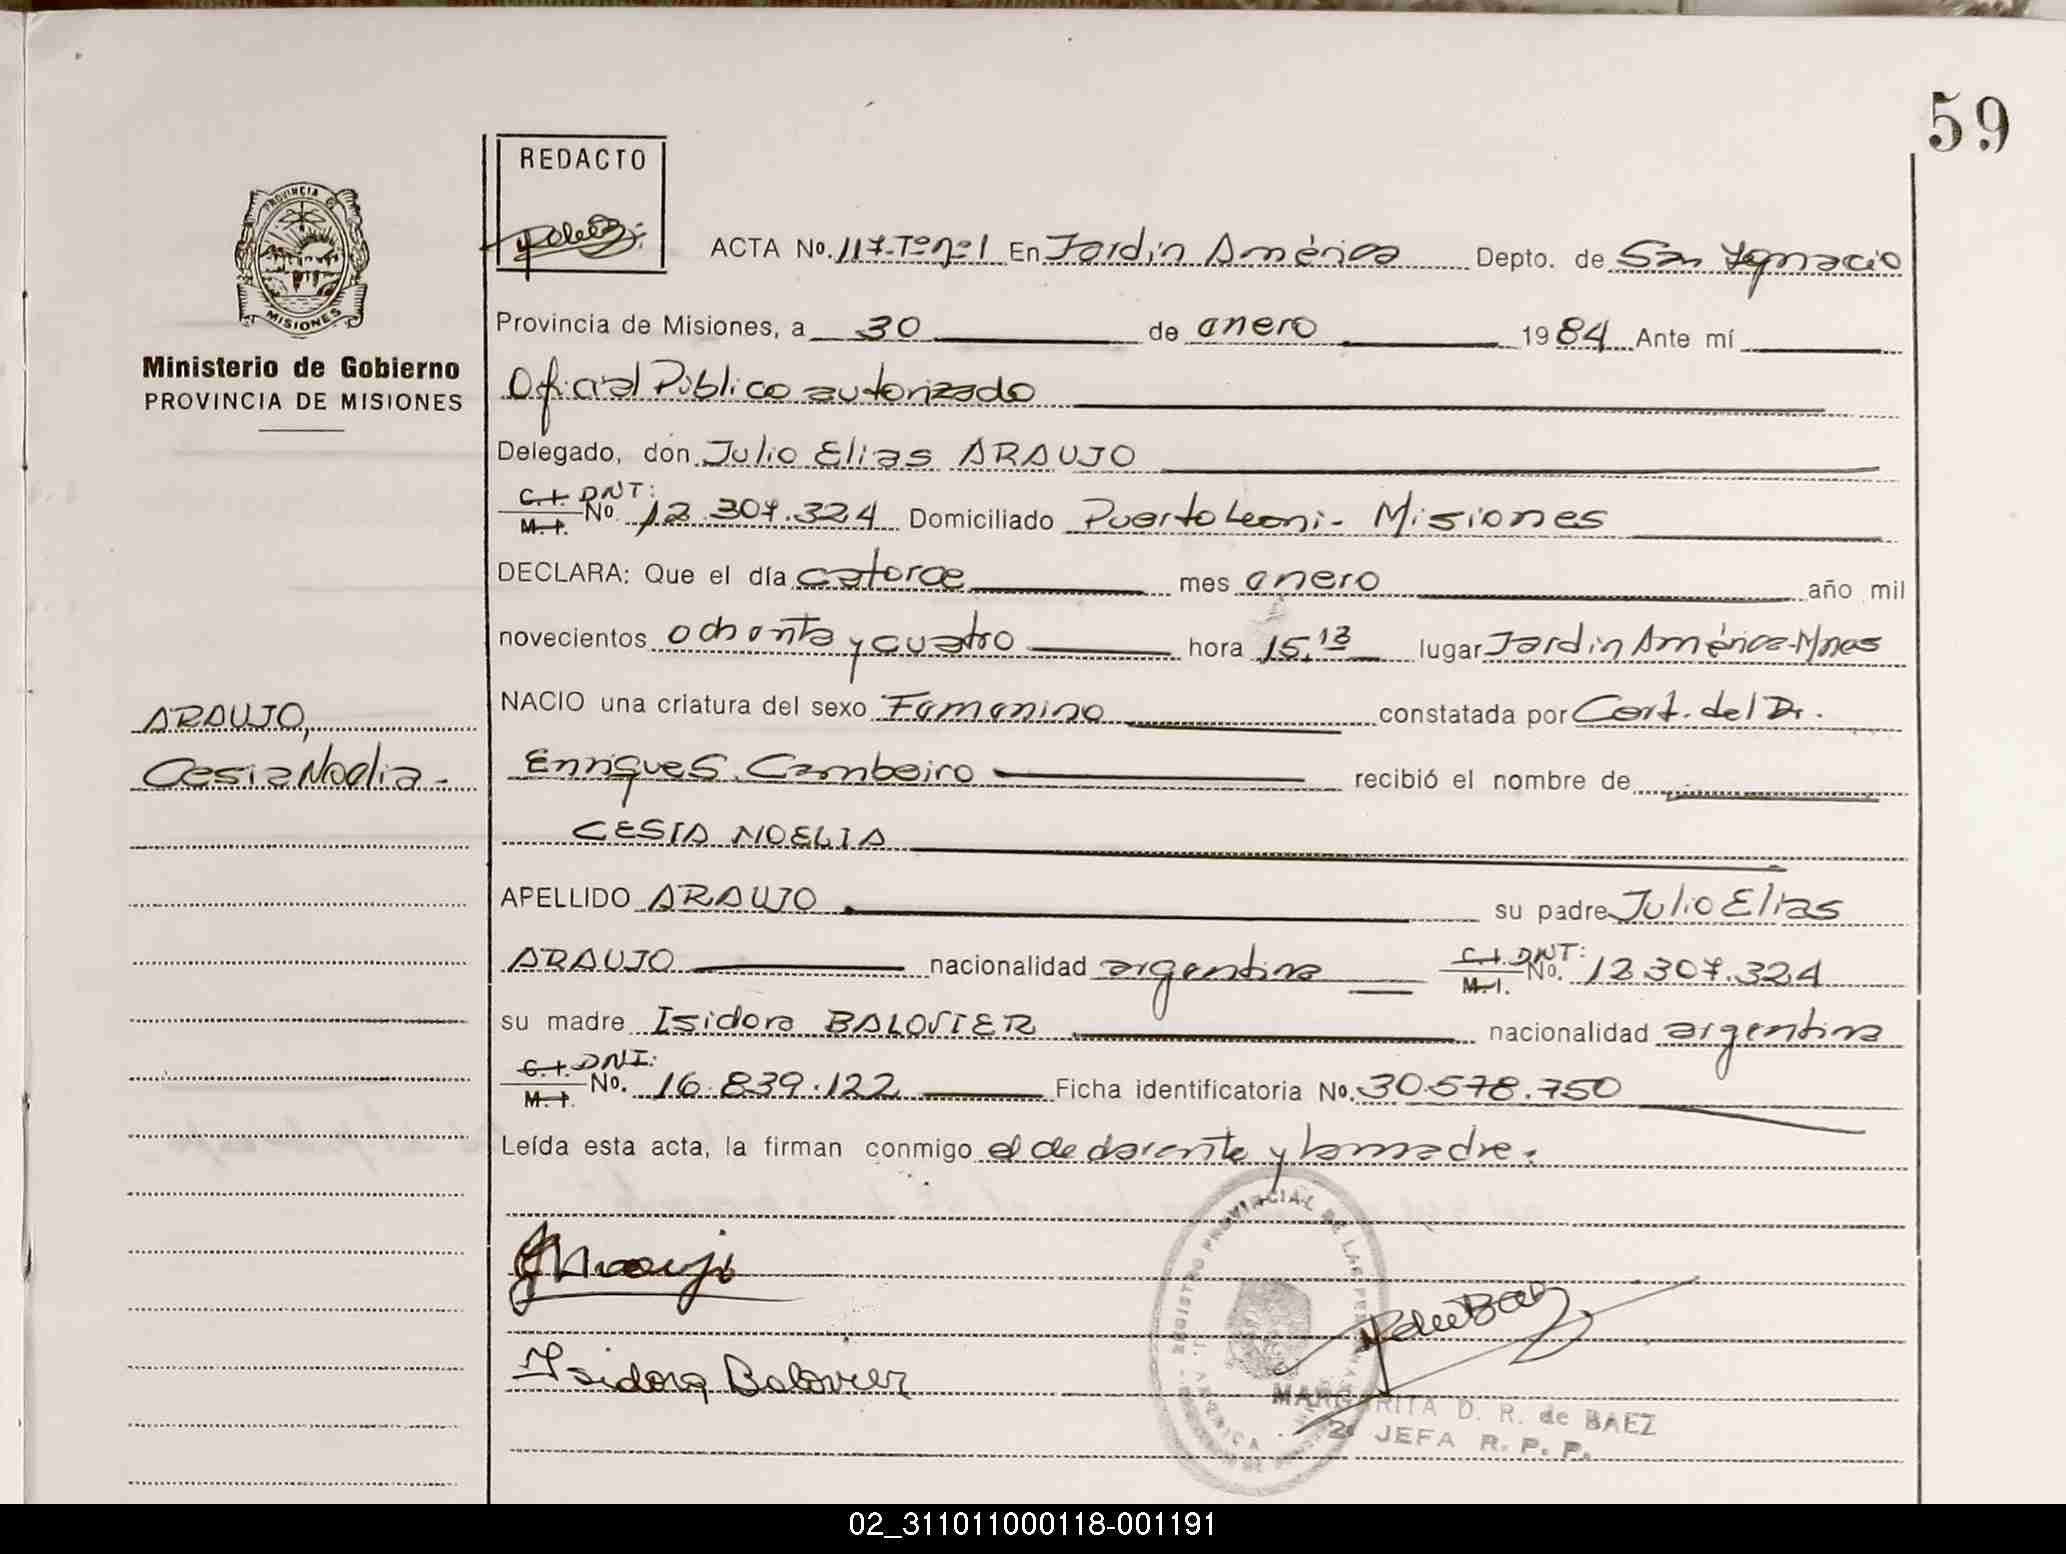 59
REDACTO
PROVINCIA DE
MISIONES
Ministerio de Gobierno
PROVINCIA DE MISIONES
ACTA No. 117-Tºnº1 En Jardín América Depto. de San Ygnacio
Provincia de Misiones, a 30 de enero 1984 Ante mí
Oficial Público autorizado
Delegado, don Julio Elias ARAUJO
C.I. DNI:
M.I. No. 12.307.324 Domiciliado Puerto Leoni - Misiones
DECLARA: Que el día catorce mes enero año mil
novecientos ochenta y cuatro hora 15,13 lugar Jardín América-Mnes
NACIO una criatura del sexo Femenino constatada por Cert. del Dr.
Enrique S. Cambeiro recibió el nombre de
CESIA NOELIA
ARAUJO,
Cesia Noelia -
APELLIDO ARAUJO su padre Julio Elias
ARAUJO nacionalidad argentina C.I. DNI:
M.I. No. 12.307.324
su madre Isidora BALOVIER nacionalidad argentina
C.I. DNI:
M.I. No. 16.839.122 Ficha identificatoria No. 30.578.750
Leída esta acta, la firman conmigo el declarante y la madre.
Isidora Balovier
REGISTRO PROVINCIAL DE LAS PERSONAS
MARGARITA D. R. de BAEZ
2º JEFA R. P. P.
02_311011000118-001191